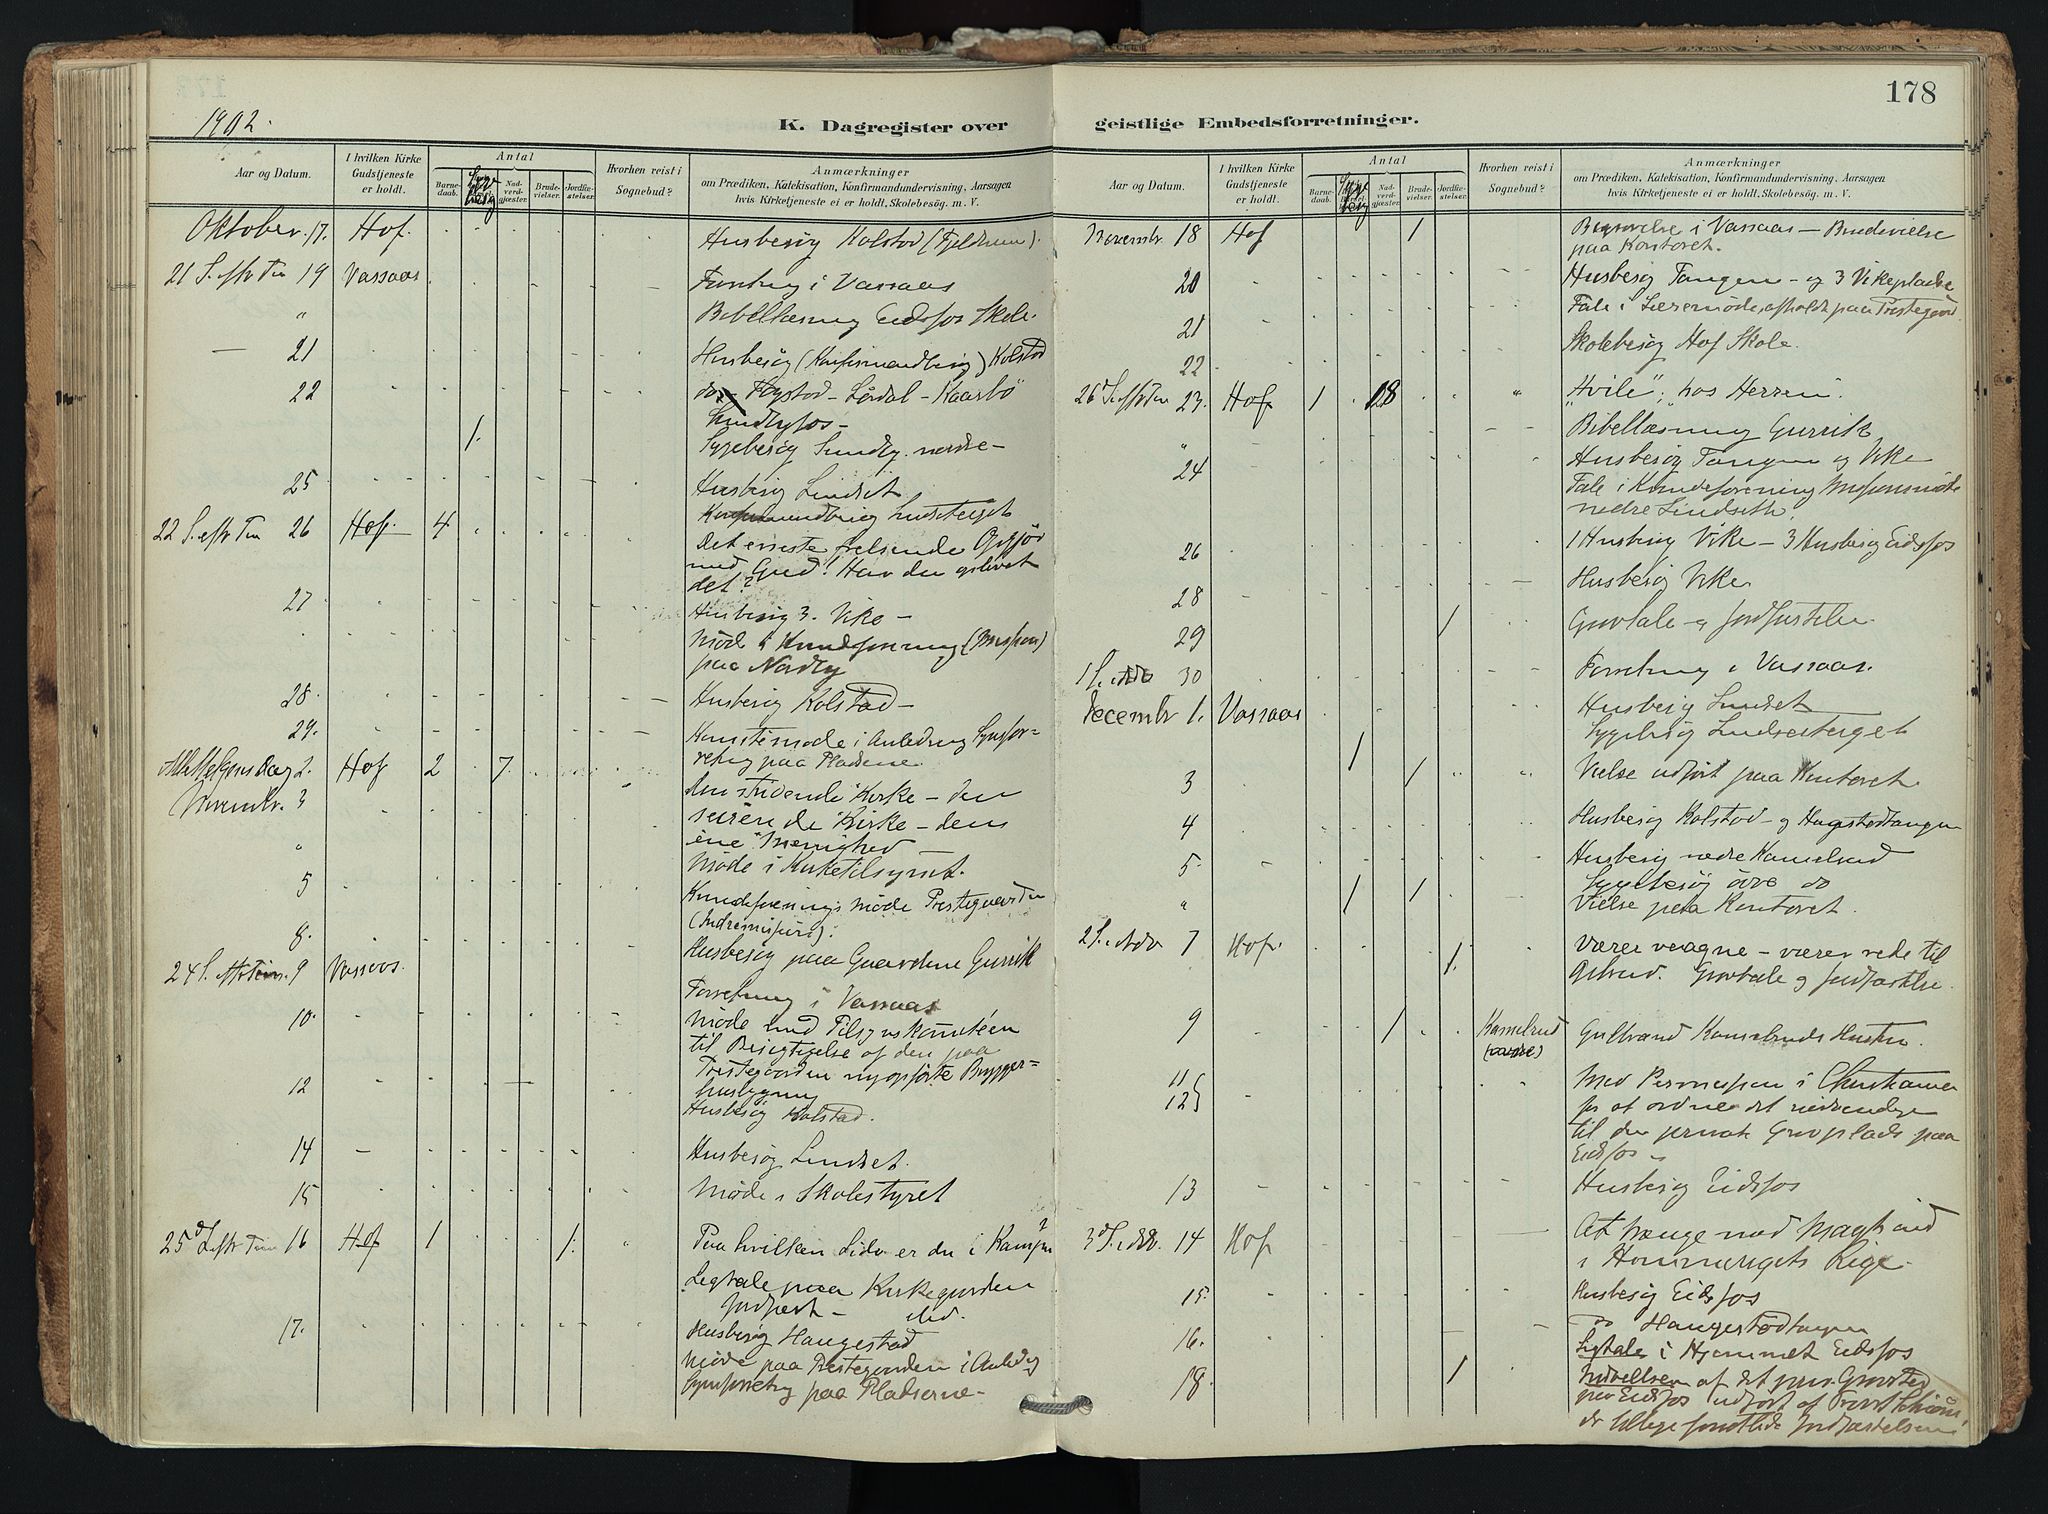 178
1902.
K. Dagregister over
geistlige Embedsforretninger.
Aar og Datum.
I hvilken Kirke Gudstjeneste er holdt.
Antal
Barnedaab.
Sygebesøg
Nadverdgjæster.
Brudevielser.
Jordfæstelser.
Hvorhen reist i Sognebud?
Anmærkninger
om Prædiken, Katekisation, Konfirmandundervisning, Aarsagen
hvis Kirketjeneste ei er holdt, Skolebesøg. m. V.
Oktober. 17. Hof. Husbesøg Kolstad
21 S. eftr Trin 19 Vassaas Forretning i Vassaas
" Bibellæsning Eidsfos Skole.
— 21 Husbesøg (Konfirmandbesøg) Kolstad
22 do - - Kaarbö
Sundbyfos -
1. Sygebesøg Sundby nordre -
25 Husbesøg Lindset
22 S. eftr Trin 26 Hof. 4 Det eneste frelsende Opgjör
med Gud! Har du oplevet
det?
27 Husbesøg 3. Vike -
Møde i Kvindeforening (Mission)
paa Nordby
28. Husbesøg Kolstad -
29. i Anledning Synsfor-
retng paa Pladsene
Alle Helgens Dag 2. Hof 2 7. Den stridende Kirke - den
Novembr. 3 seirende Kirke - dens
ene Menighed
" Møde i Kirketilsynet.
5 Kvindeforenings Møde Prestegaarden
(Indremission).
8. Husbesøg paa Gaardene Gurrik
24 S. eftr Trin. 9 Vassaas. Forretning i Vassaas
10. Møde med Tilsynskomiteen
til Besigtigelse af den paa
Prestegaarden nyopførte Brygger-
husbygning
12 Husbesøg Kolstad.
14 Husbesøg Lindset.
15 Møde i Skolestyret
25d S. eftr Trin 16 Hof 1 1. Paa hvilken Side er du i Kampen?
Ligtale paa Kirkegaarden
Jordfæst -
17. Husbesøg Haugestad
Møde paa Prestegaarden i Anledng
Synsforretng paa Pladserne -
Aar og Datum.
I hvilken Kirke Gudstjeneste er holdt.
Antal
Barnedaab.
Sygebesøg
Nadverdgjæster.
Brudevielser.
Jordfæstelser.
Hvorhen reist i Sognebud?
Anmærkninger
om Prædiken, Katekisation, Konfirmandundervisning, Aarsagen
hvis Kirketjeneste ei er holdt, Skolebesøg. m. V.
Novembr. 18 Hof 1 Begravelse i Vassaas - Brudevielse
paa Kontoret.
20 Husbesøg Tangen - og 3 Vikepladse
21 Tale i Læremøde, afholdt paa Prestegaard
22 Skolebesøg Hof Skole.
26d S. eftr Trin 23. Hof 1 18 " "Hvile", hos Herren.
" Bibellæsning Gurrik
24 Husbesøg Tangen og Vike
Tale i Kvindeforening Missionsmøte
nedre Lindseth
26 1 Husbesøg Vike - 3 Husbesøg Eidsfos
28 Husbesøg Vike
29 1 Gravtale og Jordfæstelse.
1 S. i Adv 30 Forretning i Vassaas.
Decembr 1. Vassaas Husbesøg Lindset
1 Sygebesøg Lindsetberget
3 1 " " Vielse udført paa Kontoret
4 Husbesøg Kolstad - og Hagestadtangen
5 Husbesøg nedre Kamelrud
" 1 1 Sygebesøg övre do
Vielse paa Kontoret.
2 S. i Adv 7 Hof. 1. Være vaagne - være rede til
Opbrud. Gravtale og Jordfæstelse.
9 1 Kamelrud Gulbrand Kamelruds Hustru.
11
12 Med Permission i Christiania
for at ordne det nødvendige
til den private Gravplads paa
Eidsfos -
13 Husbesøg Eidsfos
3d S. i Adv. 14 Hof At trænge med Magt ind
i Himmeriget Rige.
15. Husbesøg Eidsfos
16. Do Haugestadtangen
18. 1 Ligtale i Hjemmet Eidsfos
Indvielsen af det priv. Gravsted
paa Eidsfos udført af Provst
Jordfæstelsen